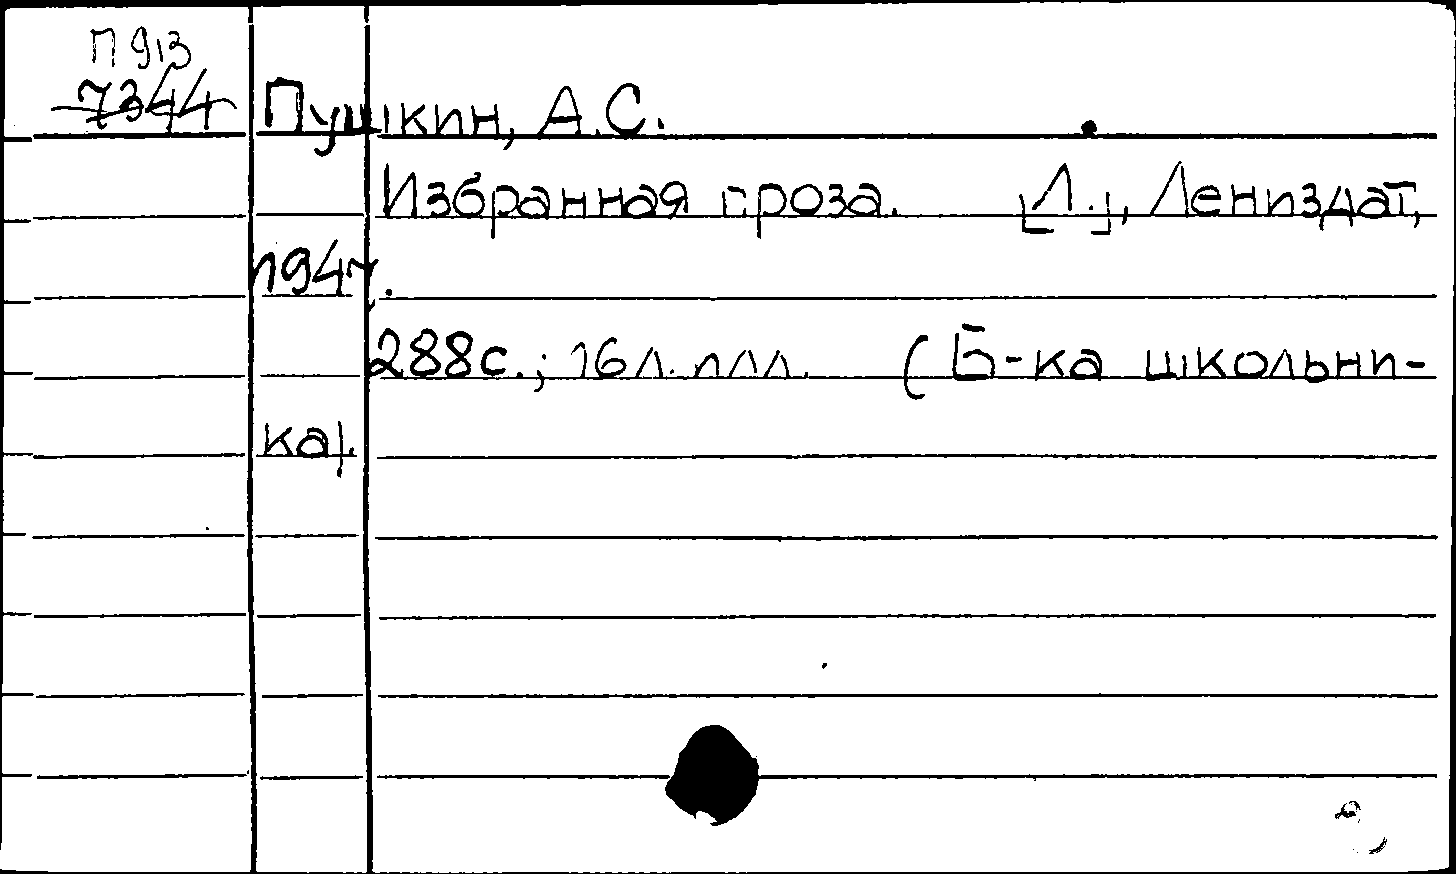 П 913
7344
Пушкин, А.С.
Избранная проза. [Л.], Лениздат,
1947.
288с.; 16л. илл. (Б-ка школьни-
ка).